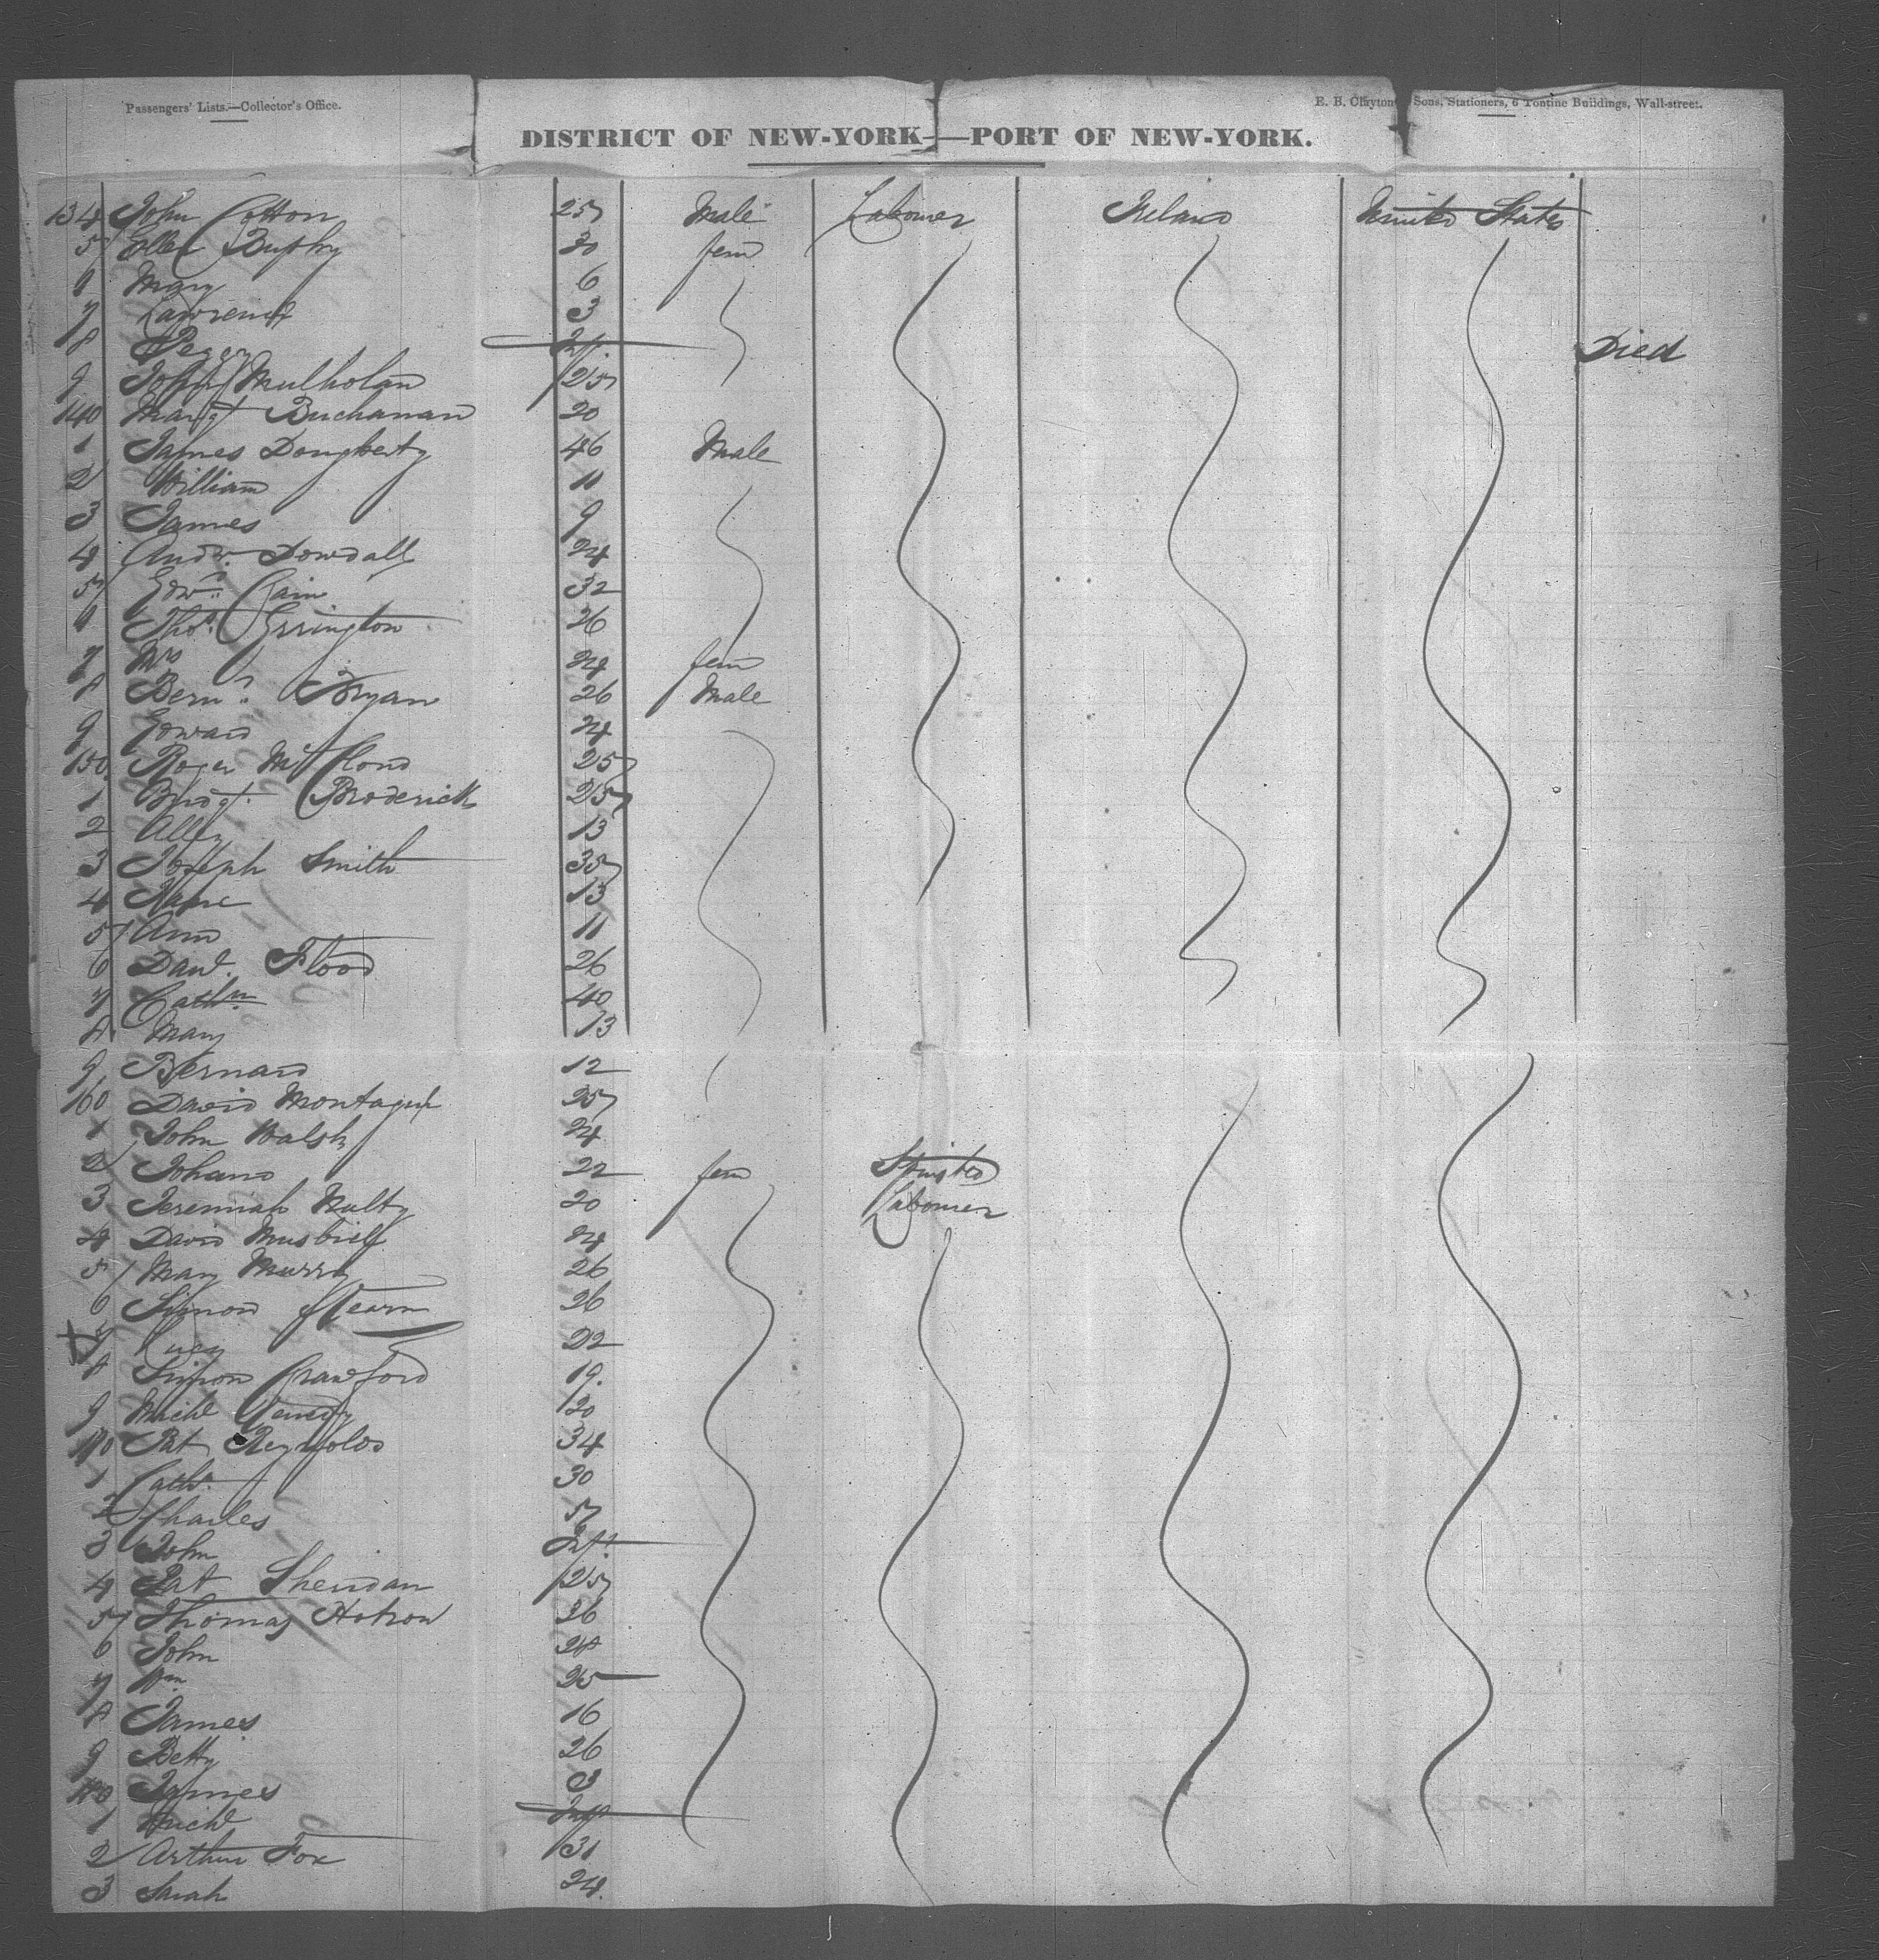 Passengers' Lists.—Collector's Office.
E. B. Clayton & Sons, Stationers, 6 Tontine Buildings, Wall-street.
DISTRICT OF NEW-YORK—PORT OF NEW-YORK.
134 John Cotton 25 Male Labourer Ireland United States
5 Ellen 30 fem
6 Mary 6
7 Lawrence 3
8 Peggy Inf. Died
9 John Mulholan 25
140 Margt Buchanan 20
1 James Dougherty 46 Male
2 William 11
3 James 9
4 Andw. Dowdall 24
5 Edwd. Cain 32
6 Thos. Errington 26
7 Mrs 24 fem
8 Bernd. 26 Male
9 Edward 24
150 Roger 25
1 Bridgt. Broderick 25
2 Alley 13
3 Joseph Smith 35
4 Jane 13
5 Ann 11
6 Flood 26
7 Cathn 40
8 Mary 13
9 Bernard 12
160 David Montague 25
1 John Walsh 24
2 Johana 22 fem Spinster
3 Jeremiah Nulty 20 Labourer
4 David 24
5 Mary Murry 26
6 Simon 26
7 Lucy 22
8 Simon Crawford 19.
9 Michl 20
170 Pat Reynolds 34
1 Cathn 30
2 Charles 5
3 John Inf.
4 Pat Sheridan 25
5 Thomas 26
6 John
7 Wm 25
8 James 16
9 Betty 26
180 James 3
1 Michl Inf
2 Arthur Fox 31
3 Sarah 24.